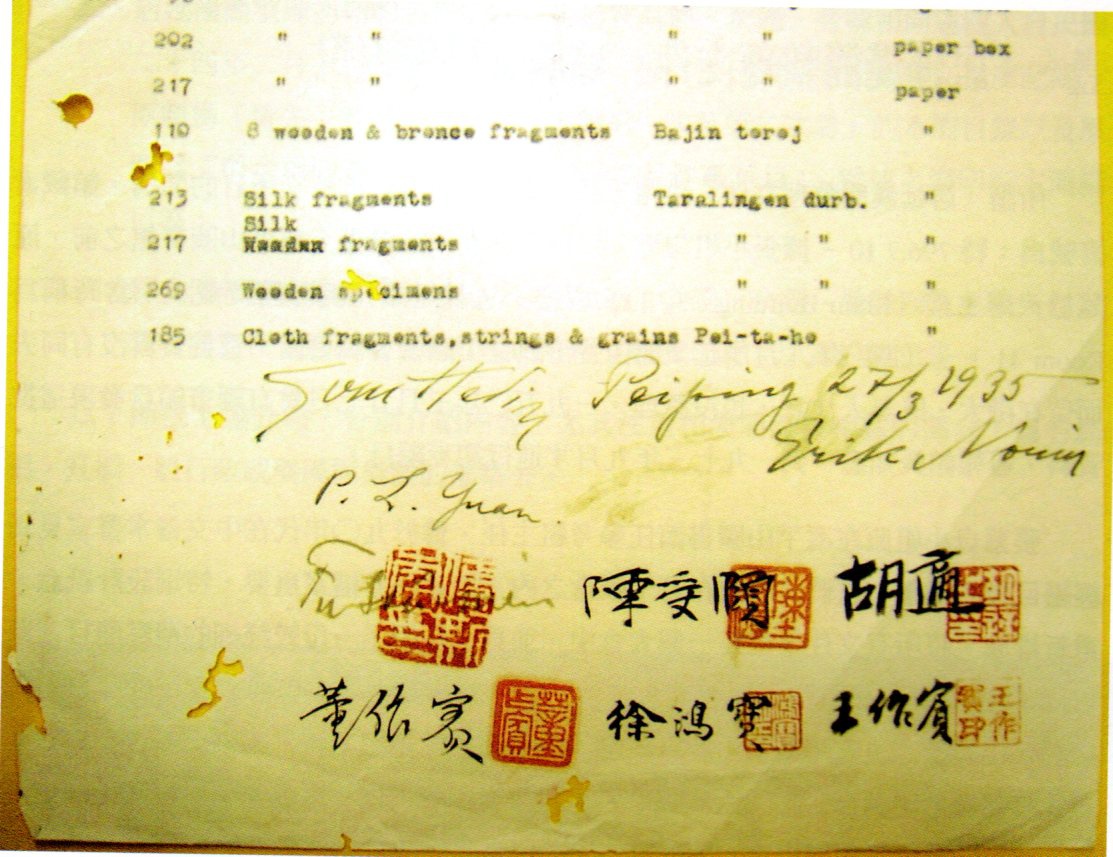 202 " " " " paper box
217 " " " " paper
110 8 wooden & bronce fragments Bajin torej "
213 Silk fragments Taralingen durb. "
Silk
217 fragments " " "
269 Wooden specimens " " "
185 Cloth fragments,strings & grains Pei-ta-ho "
Sven Hedin Peiping 27/3 1935
Erik Norin
P. L. Yuan.
Fu 陳受頤 胡適
董作賓 徐鴻寶 王作賓